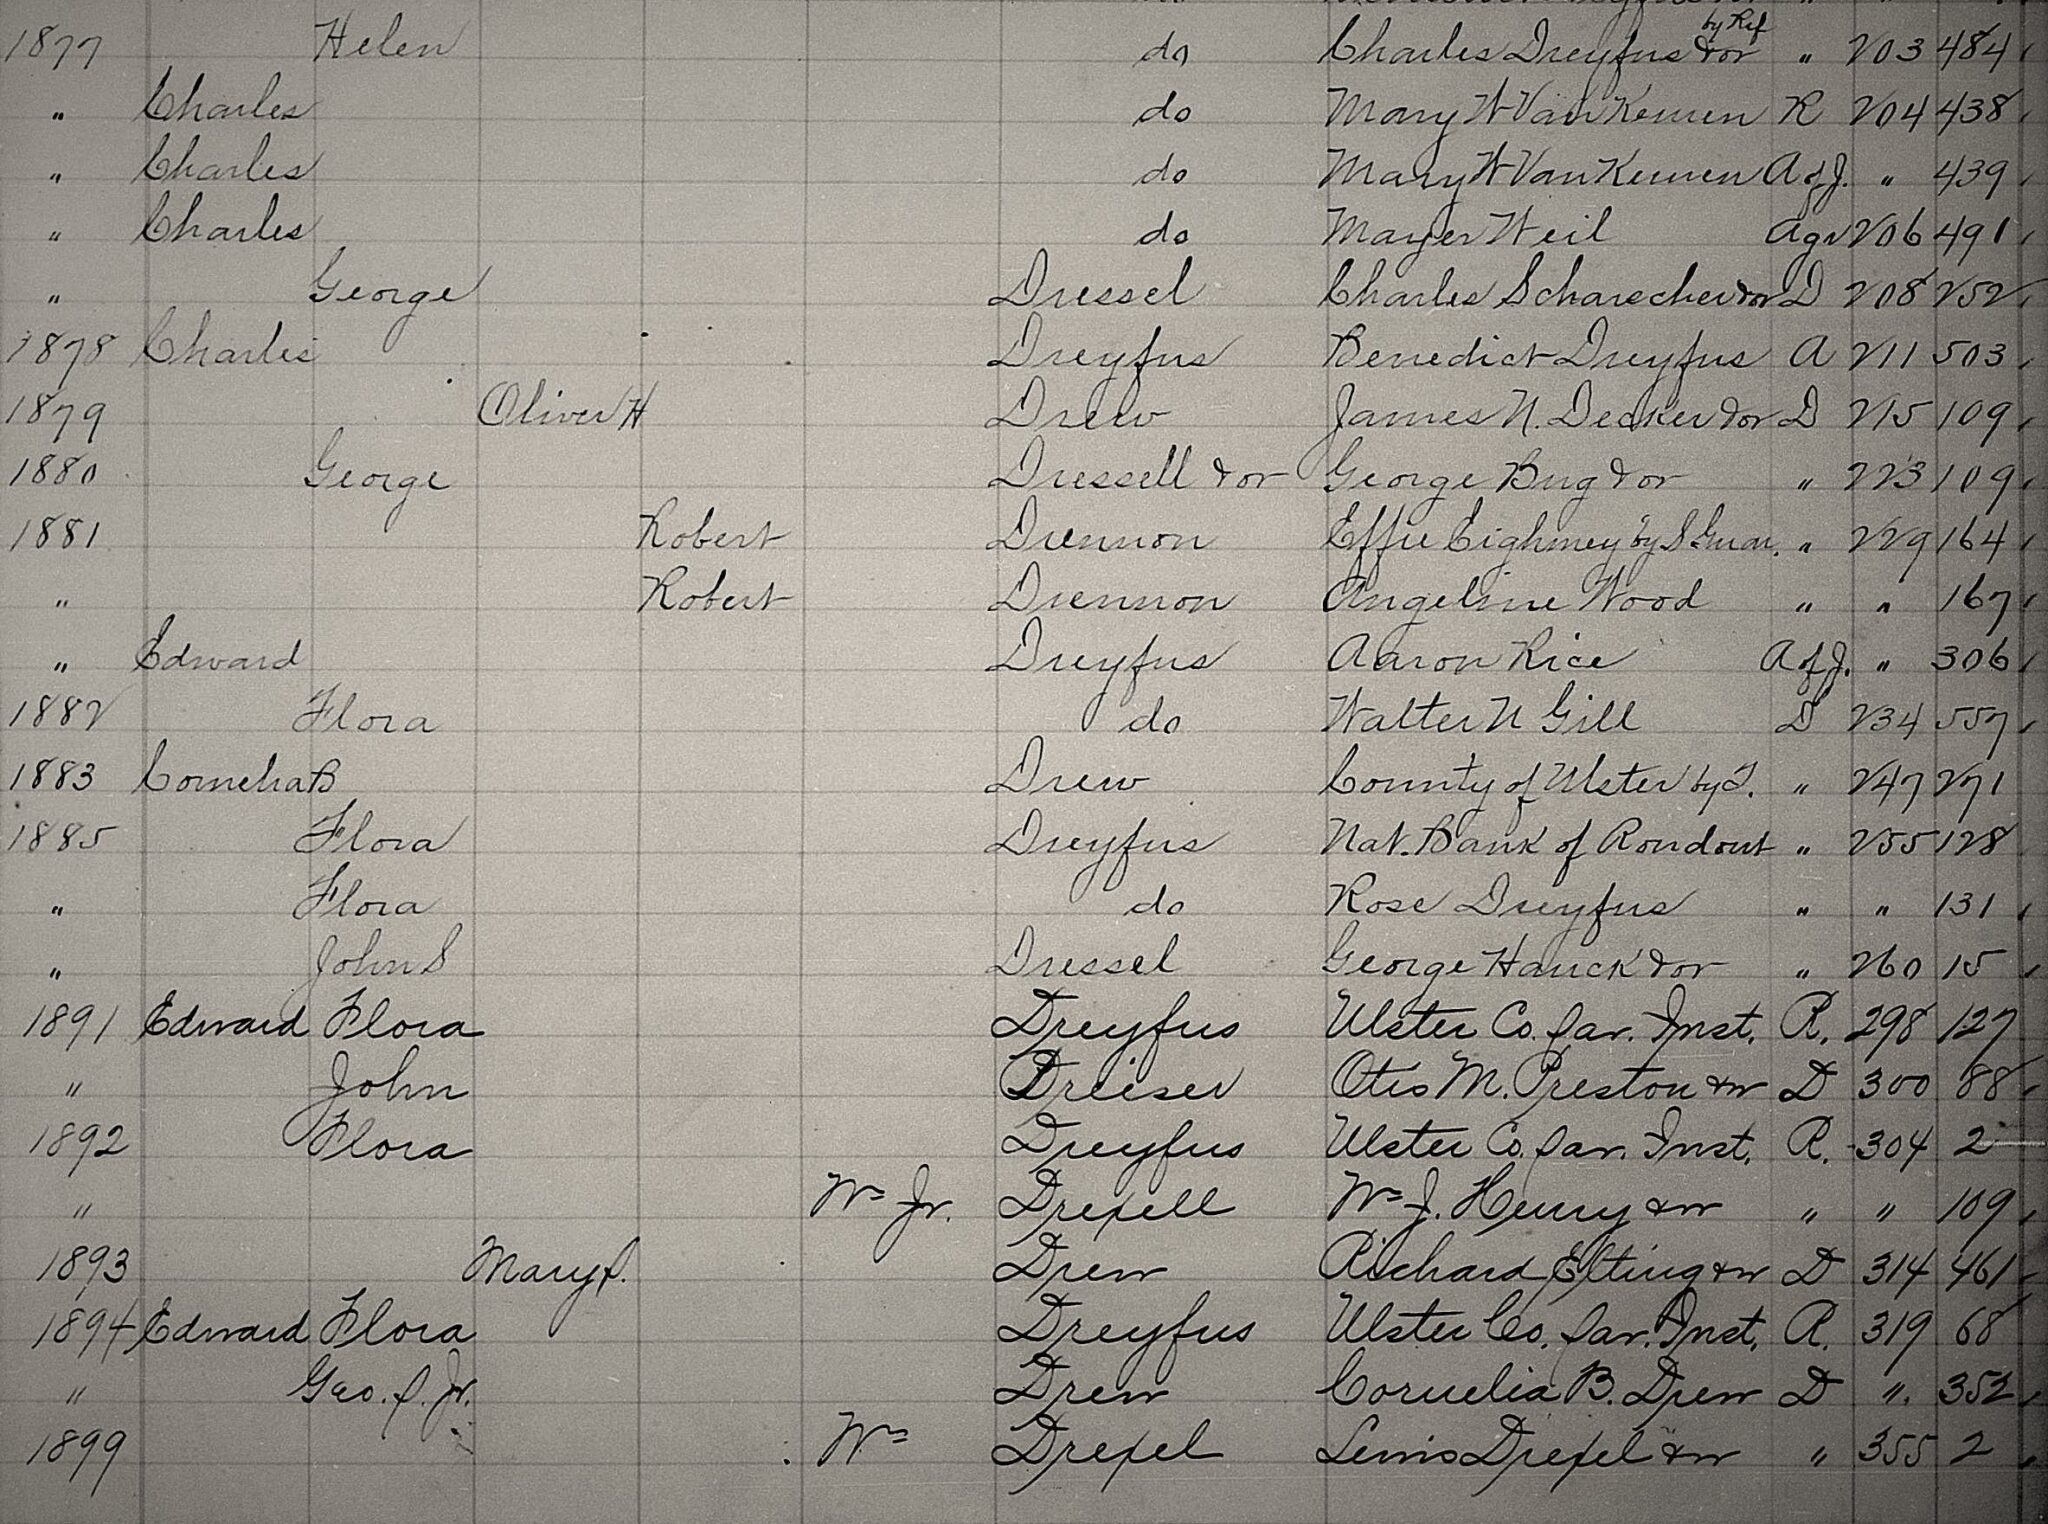 1877 Helen do Charles Dreyfus by Ref &or " 203 484
" Charles do Mary W Van Keuren R 204 438
" Charles do Mary W Van Keuren A of J. " 439
" Charles do Mayer Weil Agr 206 491
" George Dressel Charles &or D 208 252
1878 Charles Dreyfus Benedict Dreyfus A 211 503
1879 Oliver H Drew James N. Decker &or D 215 109
1880 George Dressell &or George Bug &or " 223 109
1881 Robert Drennon Effie Eighmey by S. Guar. " 229 164
" Robert Drennon Angeline Wood " " 167
" Edward Dreyfus Aaron Rice A of J. " 306
1882 Flora do Walter N Gill D 234 557
1883 Cornelia B Drew County of Ulster by T. " 247 271
1885 Flora Dreyfus Nat. Bank of Rondout " 255 128
" Flora do Rose Dreyfus " " 131
" John S Dressel George Hauck &or " 260 15
1891 Edward Flora Dreyfus Ulster Co. Sav. Inst. R. 298 127
" John Dreiser Otis M. Preston &w D 300 88
1892 Flora Dreyfus Ulster Co. Sav. Inst. R. 304 2
" Wm Jr. Drexell Wm J. Henry &w " " 109
1893 Mary S. Drew Richard Elting &w D 314 461
1894 Edward Flora Dreyfus Ulster Co. Sav. Inst. R. 319 68
" Geo. S. Jr. Drew Cornelia B. Drew D " 352
1899 Wm Drexel Lewis Drexel &w " 355 2